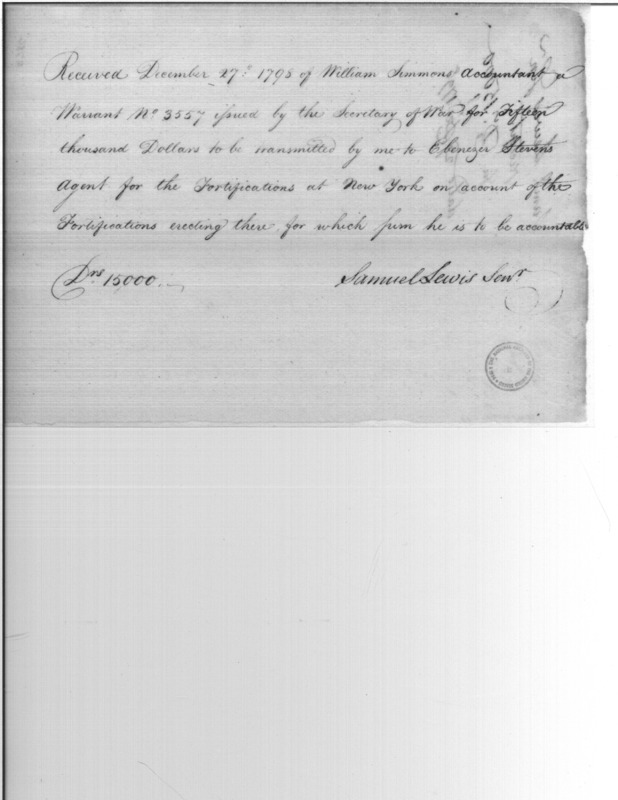 Received December 27th 1795 of William Simmons accountant a
Warrant No 3557 issued by the Secretary of War for Fifteen
thousand Dollars to be transmitted by me to Ebenezer Stevens
Agent for the Fortifications at New York on account of the
Fortifications erecting there, for which sum he is to be accountable
Drs 15,000.
Samuel Lewis Senr